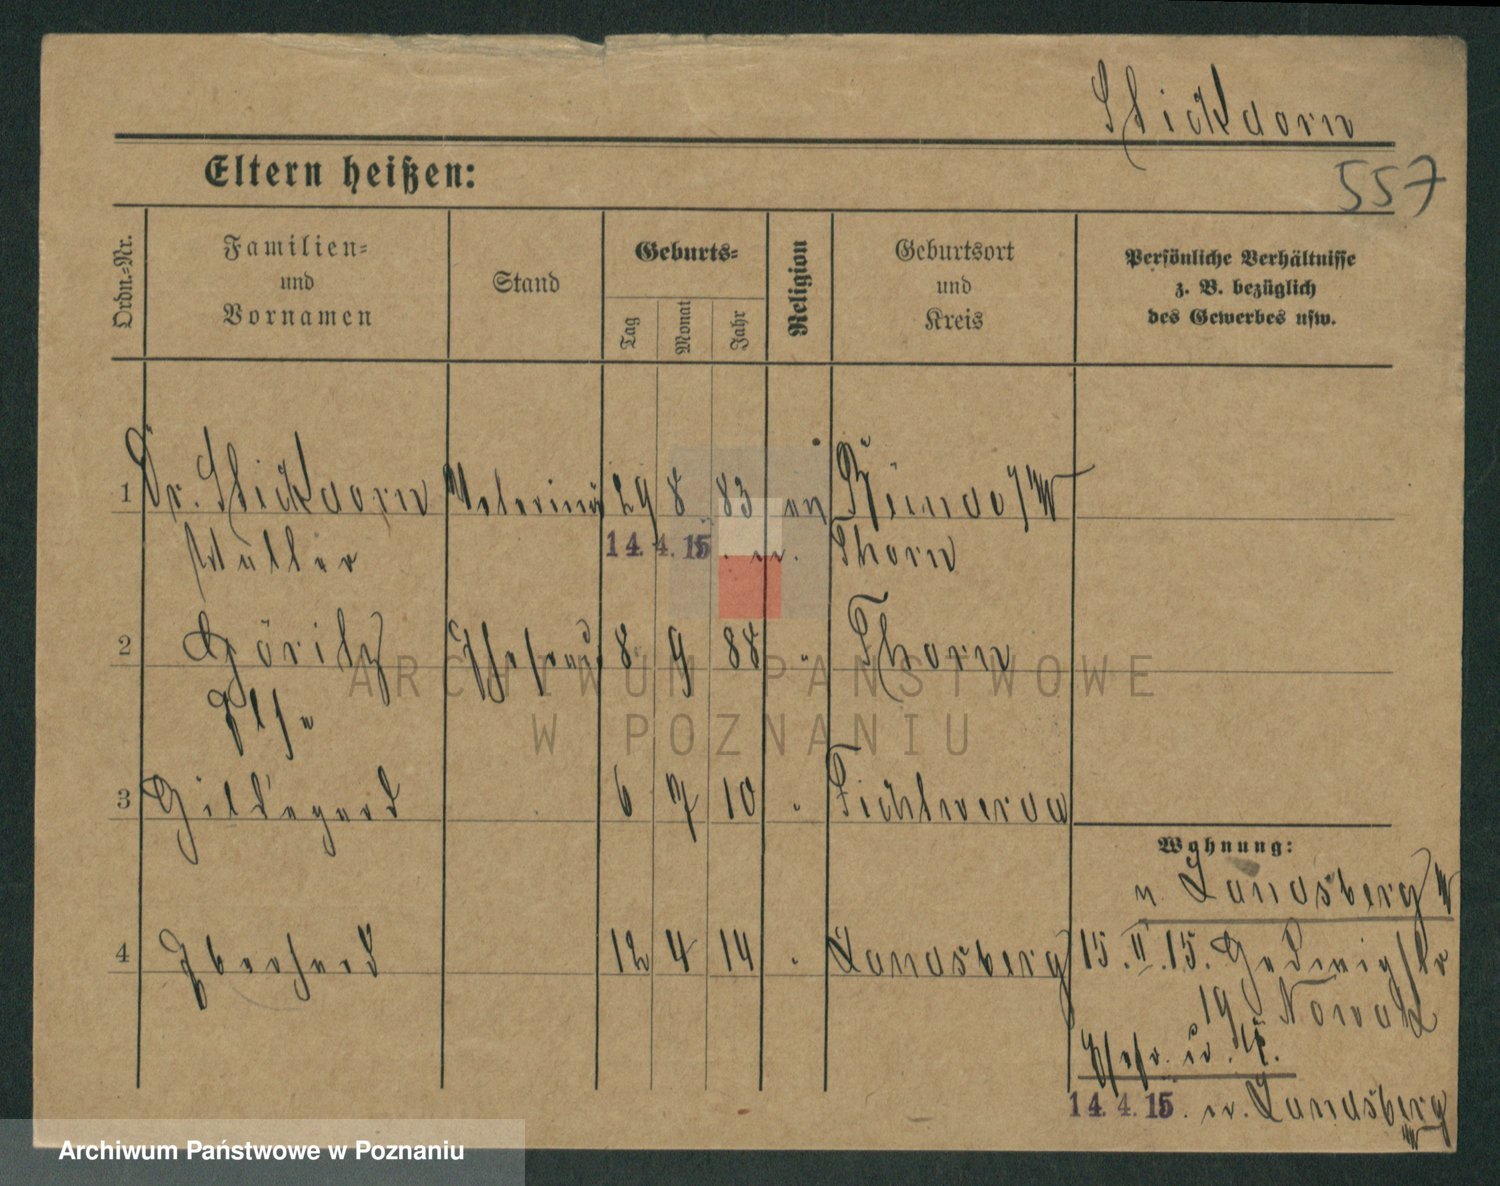 Stickdorn
557
Eltern heißen:
Ordn.=Nr.
Familien=
und
Vornamen
Stand
Geburts=
Tag
Monat
Jahr
Religion
Geburtsort
und
Kreis
Persönliche Verhältnisse
z. B. bezüglich
des Gewerbes usw.
1 Dr. Stickdorn Veterinär 29 8 83 ev
Walter 14. 4. 15 Thorn
2 Göritz Ehefrau 8 9 88 " Thorn
Else
3 Hildegard 6 7 10 "
4 Eberhard 12 4 14 " Landsberg
Wohnung:
n. Landsberg W
15. II. 15. Hedwigstr
19 Nowak
Ehefr. u. K.
14. 4. 15. n. Landsberg
W
ARCHIWUM PAŃSTWOWE
W POZNANIU
Archiwum Państwowe w Poznaniu